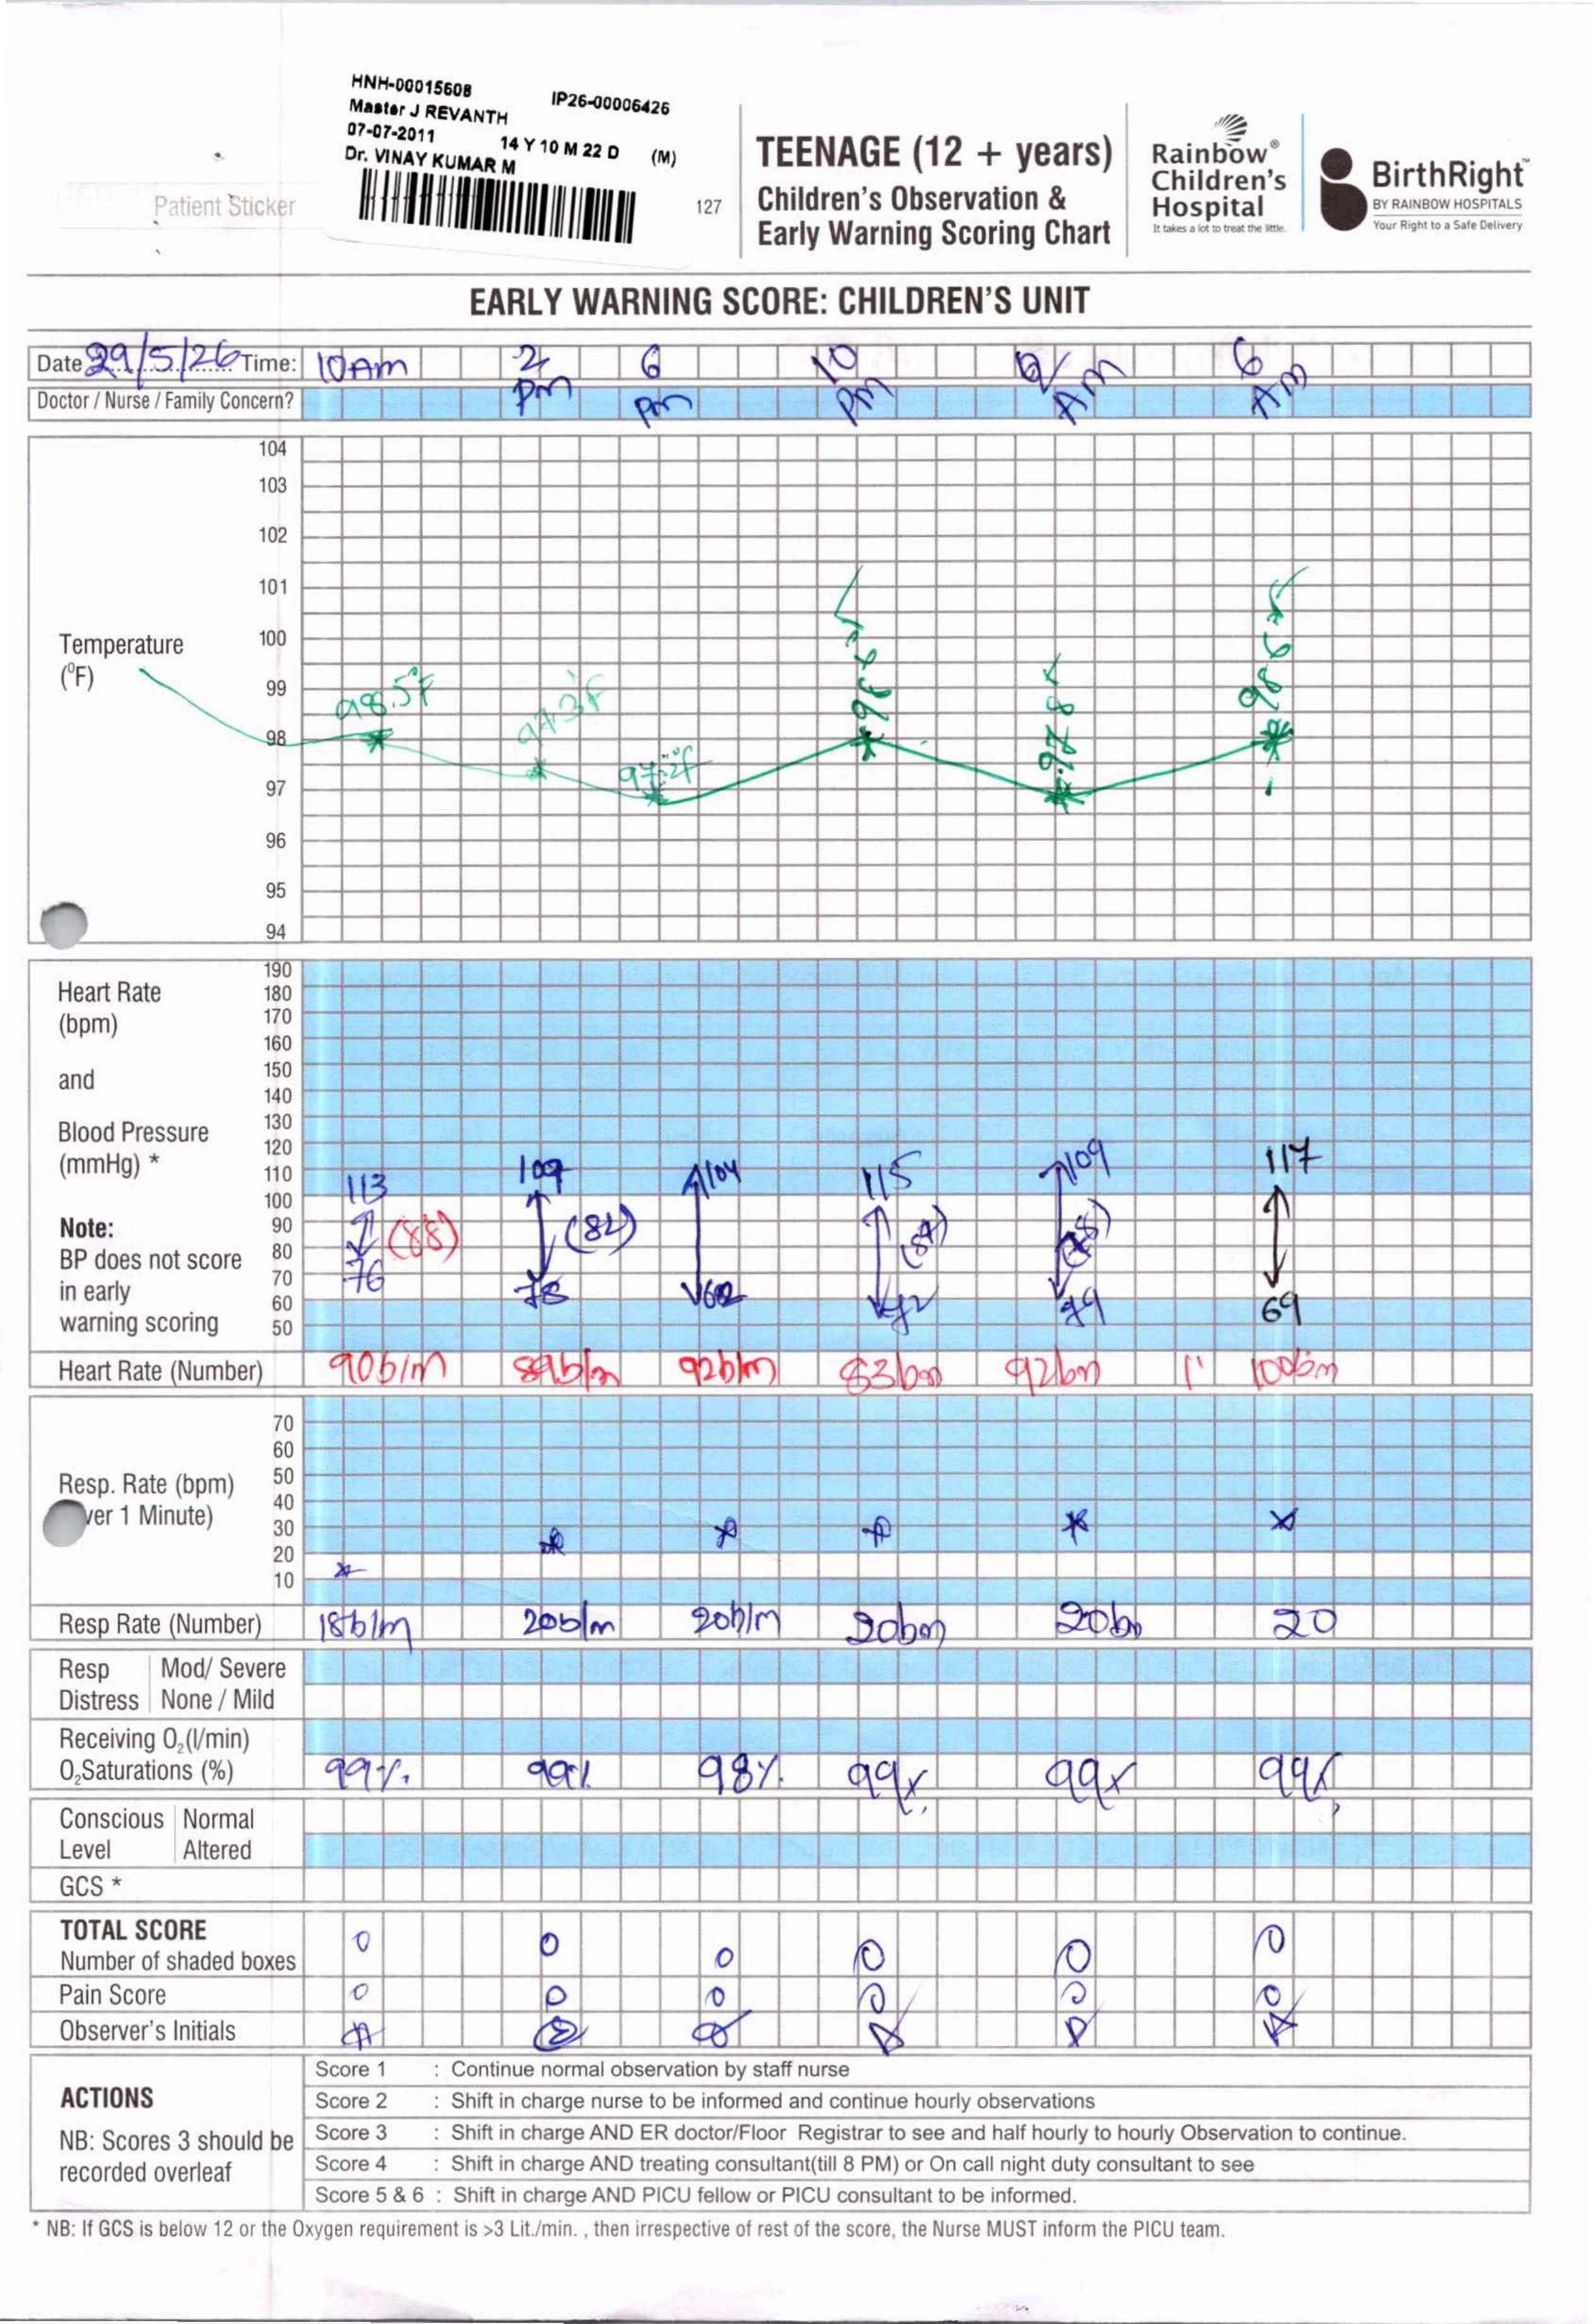 HNH-00015608 IP26-00006426
Master J REVANTH
07-07-2011 14 Y 10 M 22 D (M)
Dr. VINAY KUMAR M
Patient Sticker
127
TEENAGE (12 + years)
Children's Observation &
Early Warning Scoring Chart
Rainbow®
Children's
Hospital
It takes a lot to treat the little.
BirthRight™
BY RAINBOW HOSPITALS
Your Right to a Safe Delivery
EARLY WARNING SCORE: CHILDREN'S UNIT
Date 29/5/26 Time: 10Am 2 pm 6 pm 10 pm Am 6 Am
Doctor / Nurse / Family Concern?
Temperature
(°F)
104
103
102
101
100
99
98
97
96
95
94
98.5°F 97.3°F 97.2°F
Heart Rate
(bpm)
and
Blood Pressure
(mmHg) *
Note:
BP does not score
in early
warning scoring
190
180
170
160
150
140
130
120
110
100
90
80
70
60
50
113 109 104 115 109 117
(88) (82)
76 78 69
Heart Rate (Number) 90b/m 89b/m 92b/m 83bm 92bm 100bm
Resp. Rate (bpm)
ver 1 Minute)
70
60
50
40
30
20
10
Resp Rate (Number) 18b/m 20b/m 20b/m 20bm 20bm 20
Resp Distress Mod/ Severe
None / Mild
Receiving O₂(l/min)
O₂Saturations (%) 99%. 99% 98%. 99% 99% 99%
Conscious Level Normal
Altered
GCS *
TOTAL SCORE
Number of shaded boxes 0 0 0 0 0 0
Pain Score 0 0 0 0 0 0
Observer's Initials
ACTIONS
NB: Scores 3 should be
recorded overleaf
Score 1 : Continue normal observation by staff nurse
Score 2 : Shift in charge nurse to be informed and continue hourly observations
Score 3 : Shift in charge AND ER doctor/Floor Registrar to see and half hourly to hourly Observation to continue.
Score 4 : Shift in charge AND treating consultant(till 8 PM) or On call night duty consultant to see
Score 5 & 6 : Shift in charge AND PICU fellow or PICU consultant to be informed.
* NB: If GCS is below 12 or the Oxygen requirement is >3 Lit./min. , then irrespective of rest of the score, the Nurse MUST inform the PICU team.